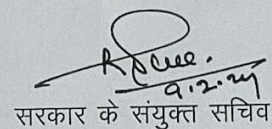 9.2.24
सरकार के संयुक्त सचिव